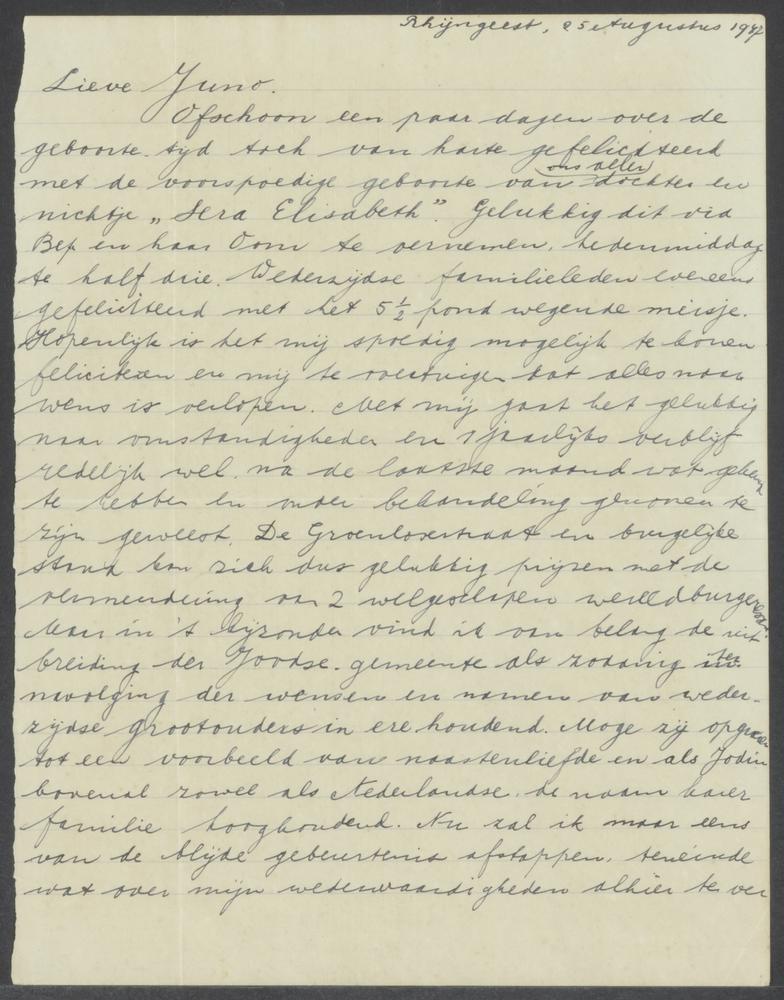 Rhijngeest, 25 Augustus 1947
Lieve Juno.
Ofschoon een paar dagen over de
geboorte tyd toch van harte gefeliciteerd
met de voorspoedige geboorte van ons aller dochter en
nichtje „Sera Elisabeth”. Gelukkig dit via
Bep en haar Oom te vernemen, hedenmiddag
te half drie. Wederzijdse familieleden eveneens
gefeliciteerd met het 5 ½ pond wegende meisje.
Hopenlijk is het mij spoedig mogelijk te komen
feliciteren en mij te overtuigen dat alles naar
wens is verlopen. Met mij gaat het gelukkig
naar omstandigheden en 1 jaarlijks verblijf
redelijk wel. na de laatste maand wat
te hebben en meer behandeling genomen te
zijn geweest. De Groenlosestraat en burgelijke
stand kan zich dus gelukkig prijzen met de
vermeerdering van 2 welgeschapen wereldburgeressen.
Maar in 't bijzonder vind ik van belang de uit
breiding der Joodse gemeente als zodanig ter
navolging der wensen en namen van weder-
zijdse grootouders in ere houdend. Moge zij opgroeien
tot een voorbeeld van naastenliefde en als Jodin
bovenal zowel als Nederlandse. de naam harer
familie hooghoudend. Nu zal ik maar eens
van de blijde gebeurtenis afstappen, teneinde
wat over mijn wederwaardigheden alhier te ver